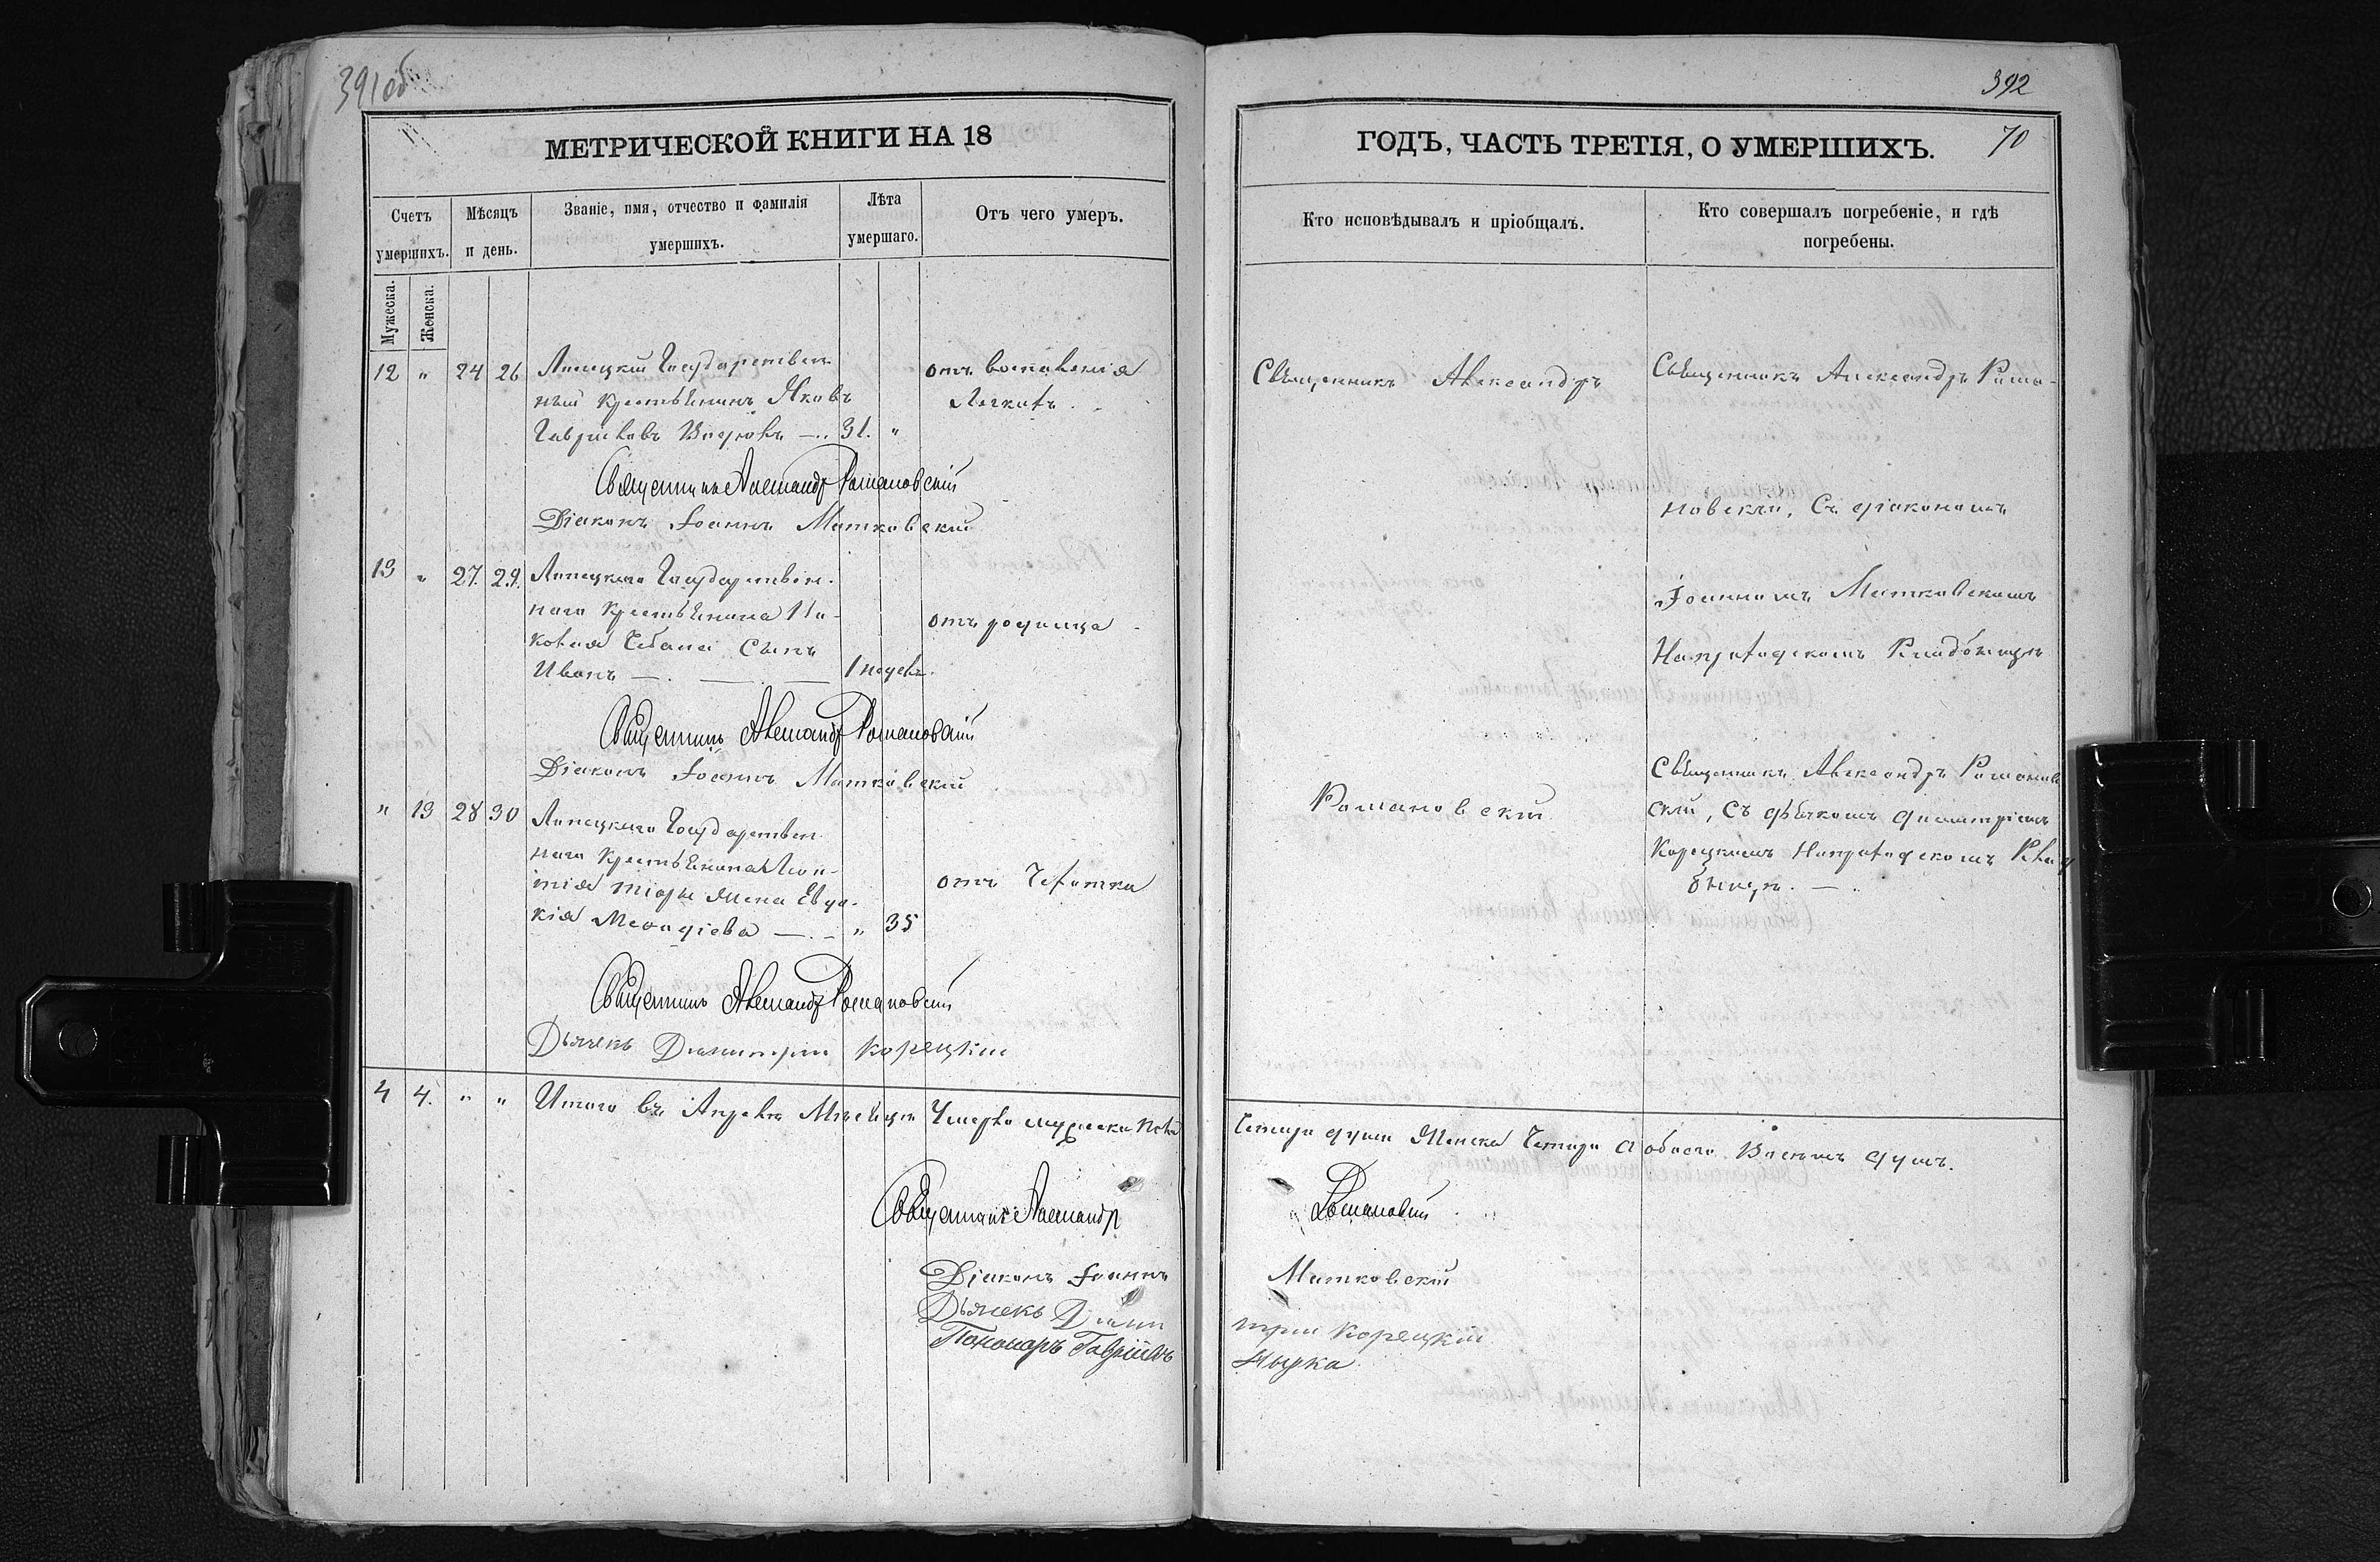 391об
МЕТРИЧЕСКОЙ КНИГИ НА 18
Счетъ умершихъ.
Мужеска.
Женска.
Мѣсяцъ и день.
Званіе, имя, отчество и фамилія умершихъ.
Лѣта умершаго.
Отъ чего умеръ.
12 " 24 26 Липецкій Государствен
ный крестьянинъ Яковъ
Гавриловъ — 31. "
отъ воспаленія
Легкихъ
Священникъ Александръ Романовскій
Діаконъ Іоаннъ Матковскій
13 " 27. 29. Липецкаго Государствен-
наго Крестьянина Ни-
колая Чебана Сынъ
Иванъ — 1 недел.
отъ родимца
Священникъ Александръ Романовскій
Діаконъ Іоаннъ Матковскій
" 13 28 30 Липецкаго Государствен
наго Крестьянина Леон-
тія жена Евдо-
кія — " 35
отъ
Священникъ Александръ Романовскій
Дьячекъ Димитрій Корецкій
4 4. " " Итого въ Апрелѣ Мѣсяцѣ Умерло мужеска пола
Священникъ Александръ
Діаконъ Іоаннъ
Дьячекъ Дими
Пономарь Гавріилъ
392
ГОДЪ, ЧАСТЬ ТРЕТІЯ, О УМЕРШИХЪ.
70
Кто исповѣдывалъ и пріобщалъ.
Кто совершалъ погребеніе, и гдѣ погребены.
Священникъ Александръ
Романовскій
Священникъ Александръ Рома-
новскій, Съ діакономъ
Іоанномъ Матковскимъ
На приходскомъ Кладбищѣ
Священникъ Александръ Романов
скій, Съ дьячкомъ Димитріемъ
Корецкимъ На приходскомъ Клад
бищѣ. —
Четыре души Женска Четыре а обоего Восемь душъ.
Романовскій
Матковскій
трій Корецкій